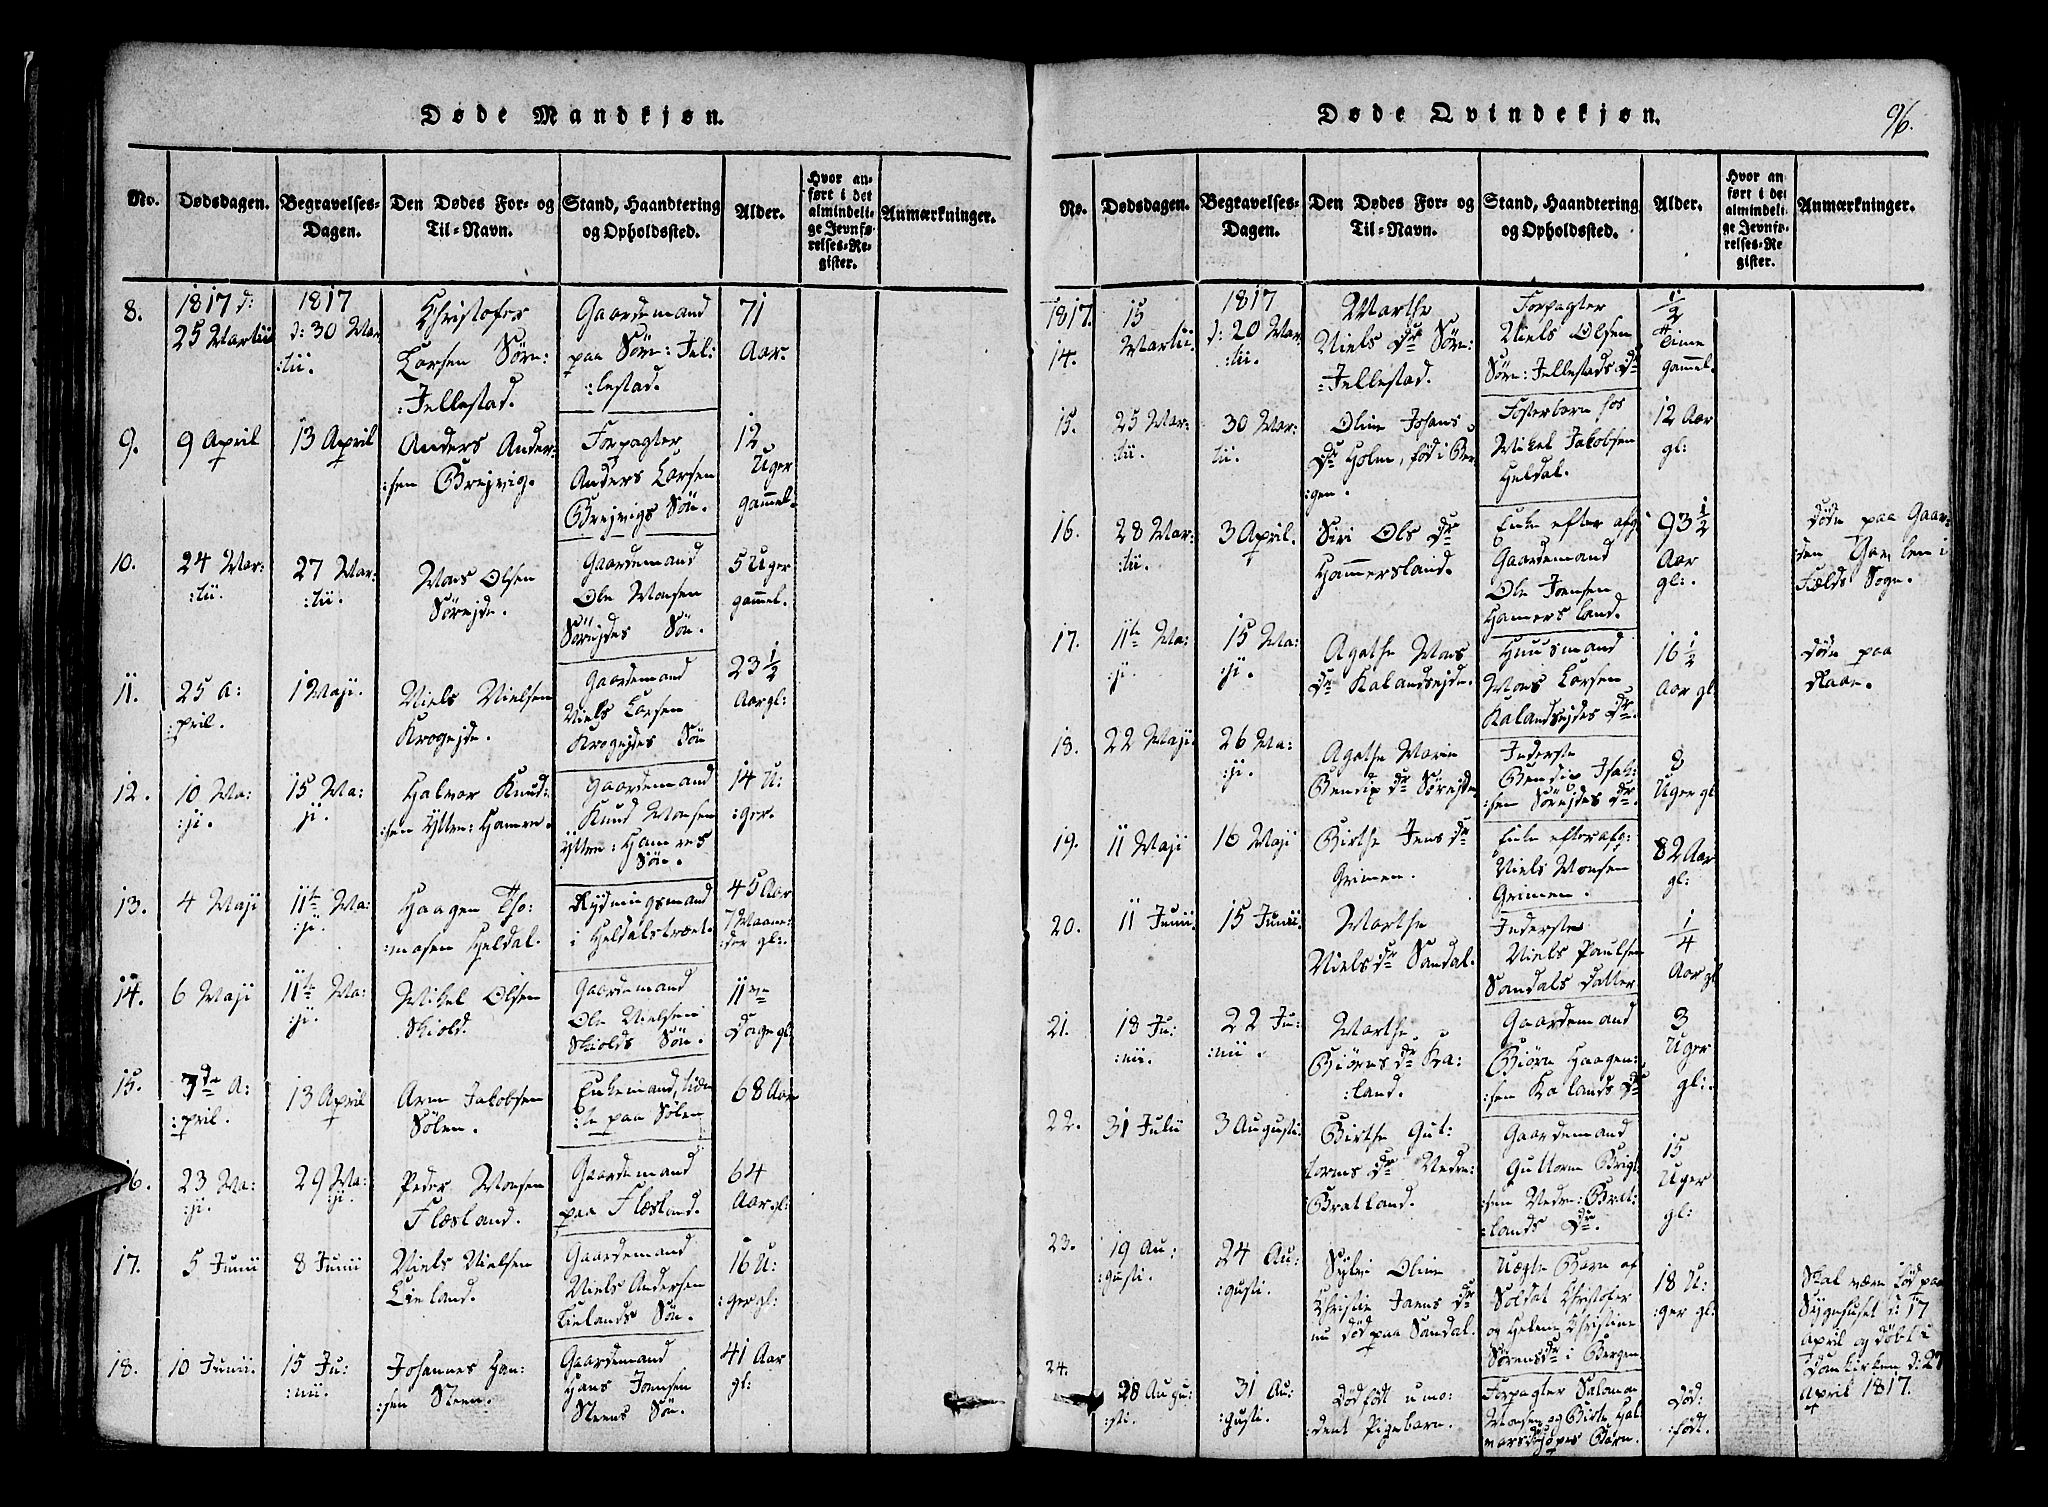 Døde Mandkjøn.
No.
Dødsdagen.
Begravelses-
Dagen.
Den Dødes For- og
Til-Navn.
Stand, Haandtering
og Opholdssted.
Alder.
Hvor an-
ført i det
almindeli-
ge Jevnfø-
relses-Re-
gister.
Anmærkninger.
8.
1817 d:
25 Martii
1817
d: 30 Mar
:tii.
Christofer
Larsen Sørn:
:Jellestad.
Gaardemand
paa Sørn: Jel:
:lestad.
71
Aar.
9.
9 April
13 April
Anders Ander-
:sen Breivig.
Forpagter
Anders Larsen
Breivigs Søn.
12
Uger
gammel.
10.
24 Mar:
:tii.
27 Mar:
:tii.
Mons Olsen
Sørejde.
Gaardemand
Ole Monsen
Sørejdes Søn.
5 Uger
gammel.
11.
25 A:
:pril.
1 Maji.
Niels Nielsen
Krogejde.
Gaardemand
Niels Larsen
Krogejdes Søn
23 1/2
Aar gl:
12.
10 Ma:
:ji.
15 Ma:
ji.
Halvor Knud:
:sen Ytter: Hamre.
Gaardemand
Knud Monsen
Ytter: Hamres
Søn.
14 U:
:ger.
13.
4 Maji
11te Ma:
:ji.
Haagen Tho:
:masen Heldal.
Rydningsmand
i Heldalstræet.
45 Aar
7 Maane:
:der gl:.
14.
6 Maji
11te Ma:
:ji.
Mikel Olsen
Skiold.
Gaardemand
Ole Nielsen
Skiolds Søn.
11ve
Dage gl:
15.
3de A:
:pril.
13 April
Arne Jakobsen
Sølen.
Enkemand,
paa Sølen
68 Aar
16.
23 Ma:
:ji.
29 Ma:
:ji.
Peder Monsen
Flæsland.
Gaardemand
paa Flæsland.
64
Aar gl:
17.
5 Junii
8 Junii
Niels Nielsen
Lieland.
Gaardemand
Niels Andersen
Lielands Søn.
16 U:
:ger gl:
18.
10 Junii.
15 Ju:
:nii.
Johannes Han:
:sen Steen.
Gaardemand
Hans Joensen
Steens Søn.
41 Aar
gl:
Døde Qvindekjøn.
96.
No.
Dødsdagen.
Begravelses-
Dagen.
Den Dødes For- og
Til-Navn.
Stand, Haandtering
og Opholdssted.
Alder.
Hvor an
ført i det
almindeli-
ge Jevnfø-
relses-Re
gister.
Anmærkninger.
1817.
14.
15
Martii.
1817
d: 20 Mar
:tii.
Marthe
Niels Dr Sørn:
:Jellestad.
Forpagter
Niels Olsen
Sørn: Jellestads Dr
1/2
Time
gammel.
15.
25 Mar-
:tii.
30 Mar:
tii.
Oline Johans
Dr Holm, fød i Ber
:gen.
Fosterbarn hos
Mikel Jakobsen
Heldal.
12 Aar
gl:
16.
28 Mar:
:tii.
3 April.
Siri Ols Dr
Hammersland.
Enke efter afg:
Gaardemand
Ole Joensen
Hamersland.
93 1/2
Aar
gl:.
Døde paa Gaar:
:den i
Fields Sogn.
17.
11te Ma:
:ji.
15 Ma:
:ji.
Agathe Mons
Dr Kalandsejde.
Huusmand
Mons Larsen
Kalandsejdes Dr.
16 1/2
Aar gl:
Døde paa
18.
22 Maji.
26 Ma:
:ji.
Agathe Marie
Bendix Dr Sørejde
Inderste
Bendix Isak:
:sen Sørejdes Dr.
8
Uger gl:
19.
11 Maji
16 Maji
Birthe Jens Dr
Grimen.
Enke efter afg:
Niels Monsen
Grimen.
82 Aar
gl:
20.
11 Junii
15 Junii.
Marthe
Niels Dr Sandal.
Inderste
Niels Paulsen
Sandals Datter
1/4
Aar gl
21.
18 Ju:
:nii.
22 Ju:
:nii.
Marthe
Biørns Dr Ka:
:land.
Gaardemand
Biørn Haagen:
:sen Kalands Dr
3
Uger
gl:.
22.
31 Julii
3 Augusti.
Birthe Gut:
torms Dr Nedre:
Bratland.
Gaardemand
Guttorm Brigt
:sen Nedre: Brat:
:lands Dr.
15
Uger
gl:
23.
19 Au:
:gusti.
24 Au:
:gusti.
Sylvi Oline
Christie Jans Dr
nu død paa Sandal.
Uægte Barn af
Soldat Christofer
og Helene Christine
Sørens Dr i Bergen
18 U:
:ger gl:
Skal være fød paa
Sygehuset d: 17
April og døbt i
Domkirken d: 27
April 1817.
24.
28 Augu:
:sti.
31 Au:
:gusti.
Dødfødt umo:
:dent Pigebarn.
Forpagter Salomon
Monsen og Birte Hal
Barn.
Død:
:født.